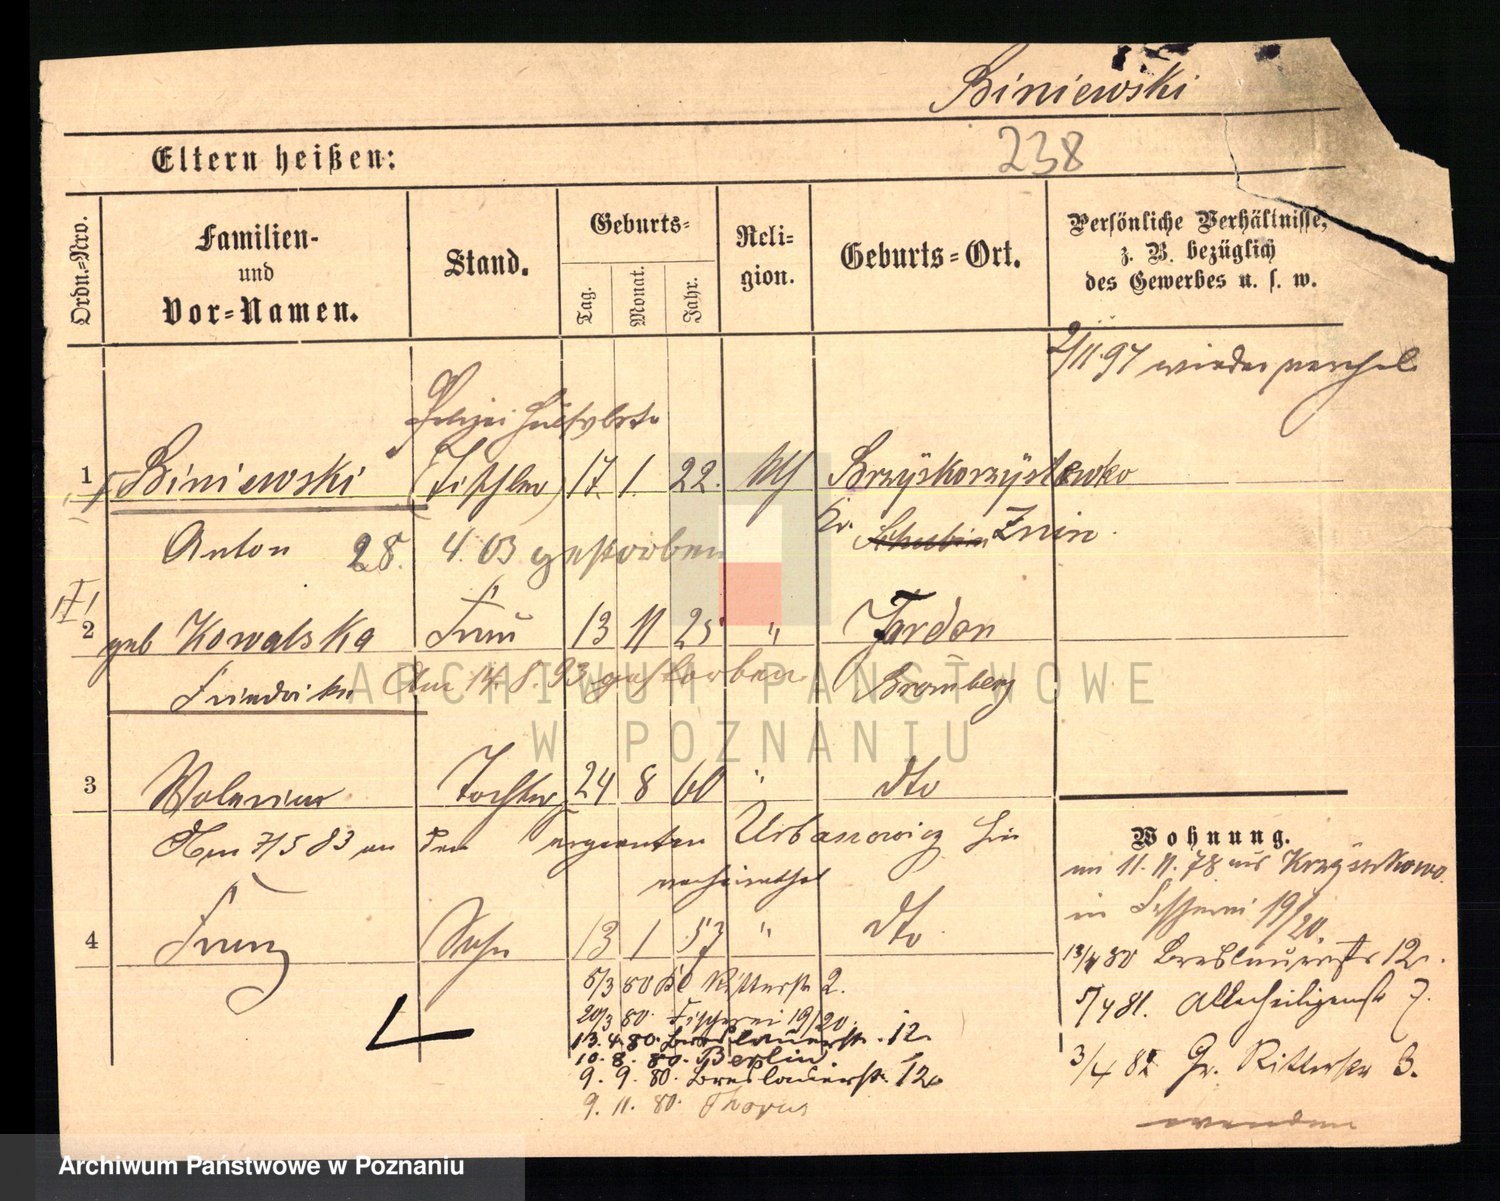 Biniewski
Eltern heißen:
238
Ordn.=Nro.
Familien-
und
Vor=Namen.
Stand.
Geburts=
Tag.
Monat.
Jahr.
Reli=
gion.
Geburts=Ort.
Persönliche Verhältnisse,
z. B. bezüglich
des Gewerbes u. s. w.
2/11 97 wieder
Polizei
1 Biniewski (Tischler) 17. 1. 22.
Anton 28. 4. 03 gestorben
Kr. Schubin Znin
2 geb Kowalska Frau 13 11 25 " Fordon
Friedrike Am 14. 8. 93 gestorben Bromberg
3 Tochter 24 8 60 " dto
Am 7/5 83 an den Urbanowicz hier
verheirathet
4 Franz Sohn 13 1 57 " dto
5/3 80 Ritterstr 2.
20/3 80. Fischerei 19/20.
13. 4. 80. Breslauerstr. 12
10. 8. 80. Berlin.
9. 9. 80. Breslauerstr. 12
9. 11. 80. Thorn
Wohnung.
11. 11. 78 aus
in Fischerei 19/20.
13/4 80 Breslauerstr 12.
5/4 81. Allerheiligenstr 7.
3/4 82 Gr. Ritterstr 3.
wenden
ARCHIWUM PAŃSTWOWE
W POZNANIU
Archiwum Państwowe w Poznaniu